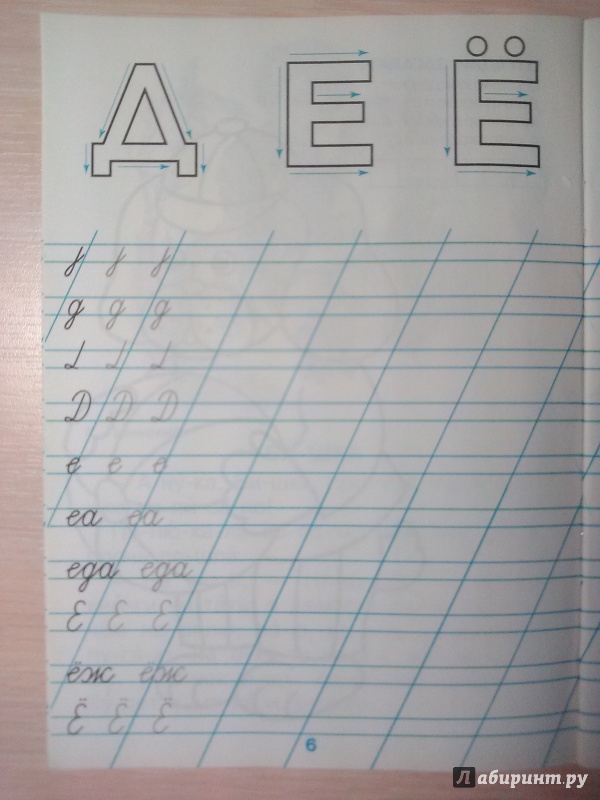 Д Е Ё
д д д
Д Д Д
е е е
еа еа
еда еда
Е Е Е
ёж ёж
Ё Ё Ё
6
Лабиринт.ру